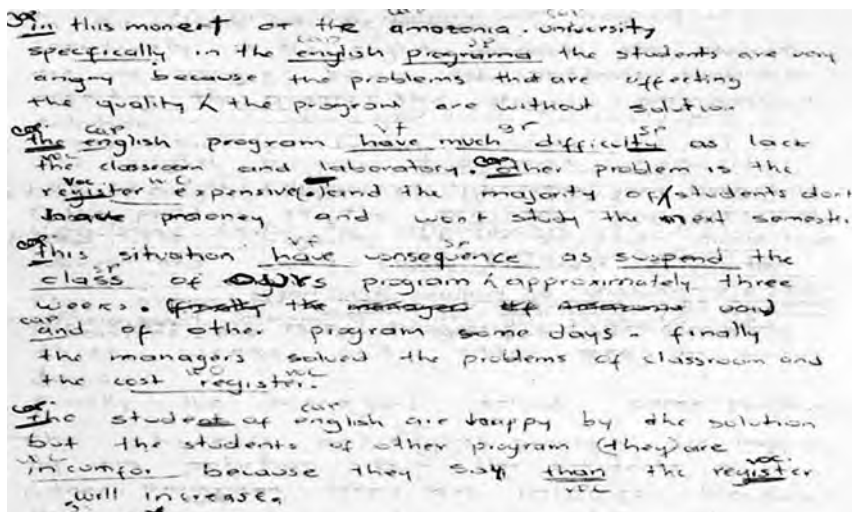 in this moment of the amazonia. university
specifically in the english programa the students are very
angry because the problems that are affecting
the quality the program are without solution
the english program have much difficulty as lack
the classroom and laboratory. other problem is the
register expensive(.) and the majority of students don't
money and won't study the next semestr.
this situation have consequence as suspend the
class of ours program approximately three
weeks. the managed
and of other program some days. finally
the managers solved the problems of classroom and
the cost register.
the student of english are happy by the solution
but the students of other program (they) are
incomfor. because they say than the register
will increase.